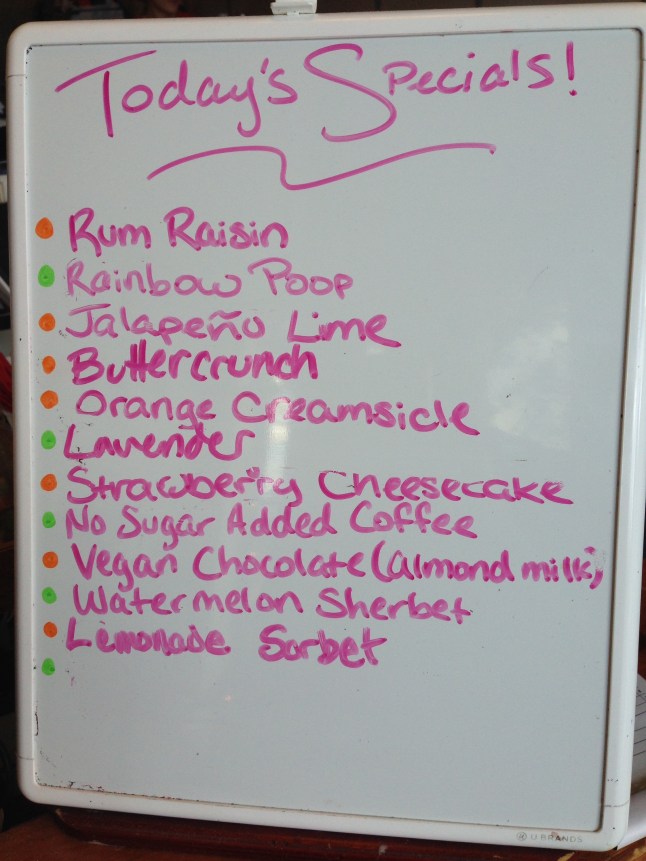 Today's Specials!
Rum Raisin
Rainbow Poop
Jalapeño Lime
Buttercrunch
Orange Creamsicle
Lavender
Strawberry Cheesecake
No Sugar Added Coffee
Vegan Chocolate (almond milk)
Watermelon Sherbet
Lemonade Sorbet
U BRANDS